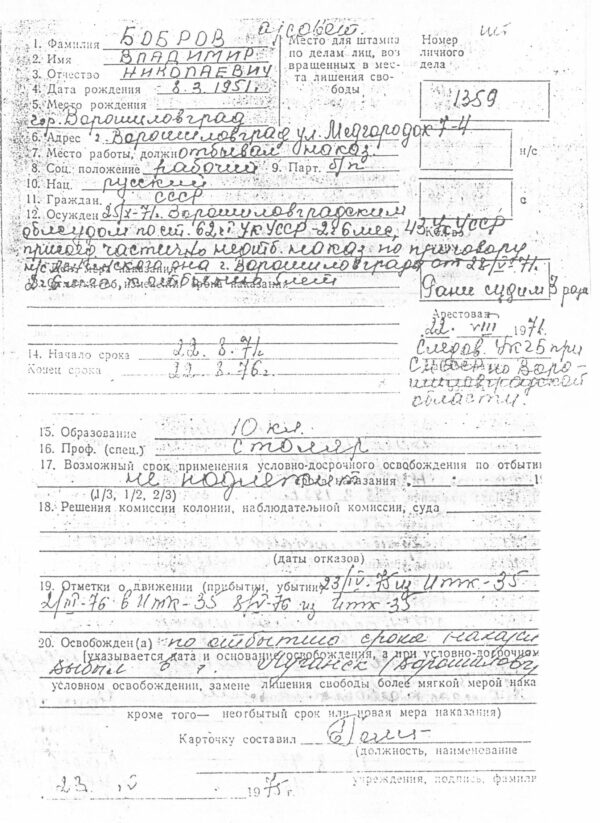 а/совет.
1. Фамилия БОБРОВ
2. Имя ВЛАДИМИР
3. Отчество НИКОЛАЕВИЧ
4. Дата рождения 8.3.1951г.
5. Место рождения
гор. Ворошиловград
6. Адрес г. Ворошиловград ул. Медгородок 7-4
7. Место работы, должн отбывал наказ.
8. Соц. положение рабочий 9. Парт. б/п
10. Нац. русский
11. Граждан. СССР
12. Осужден 25/X-71г. Ворошиловградским
облсудом по ст. 62 УК УССР 2г 6 мес, 43 УК УССР
частично неотб. наказ по приговору
г. Ворошиловграда от 28/VI-71.
Место для штампа
по делам лиц, воз
вращенных в мес-
та лишения сво-
боды
Номер
личного
дела
1359
н/с
с
Ранее судим 3 раза
Арестован
22. VIII 1971.
Следов. УКГБ при
СМ УССР по Воро-
шиловградской
области.
14. Начало срока 22. 8. 71г.
Конец срока 22. 8. 76г.
15. Образование 10 кл.
16. Проф. (спец.) столяр
17. Возможный срок применения условно-досрочного освобождения по отбыти
не надлежит наказания
(1/3, 1/2, 2/3)
18. Решения комиссии колонии, наблюдательной комиссии, суда
(даты отказов)
19. Отметки о движении (прибытии, убытии) 23/IV-75 из ИТК-35
2/III-76 в ИТК-35 8/V-76 из ИТК-35
20. Освобожден(а) по отбытию срока наказ
(указывается дата и основание освобождения, а при условно-досрочном
выбыл в г. Луганск (Ворошиловгр
условном освобождении, замене лишения свободы более мягкой мерой нака
кроме того— неотбытый срок или новая мера наказания)
Карточку составил
(должность, наименование
учреждения, подпись, фамили
23. IV 1975 г.